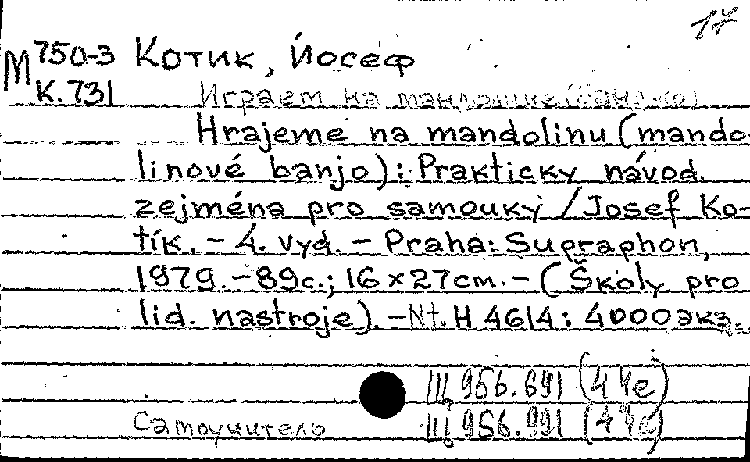 17
М 750-3 Котик, Йосеф
К.731 Играем на мандолине (банджо)
Hrajeme na mandolinu (mando
linové banjo): Prakticky návod
zejména pro samouky / Josef Ko-
tík. - 4. vyd. - Praha: Supraphon,
1979. - 89с.; 16×27cm. - (Školy pro
lid. nastroje). - Nt. H 4614: 4000экз.
Щ 956.691 (4 Че)
Самоучитель Щ 956.991 (4 Че)